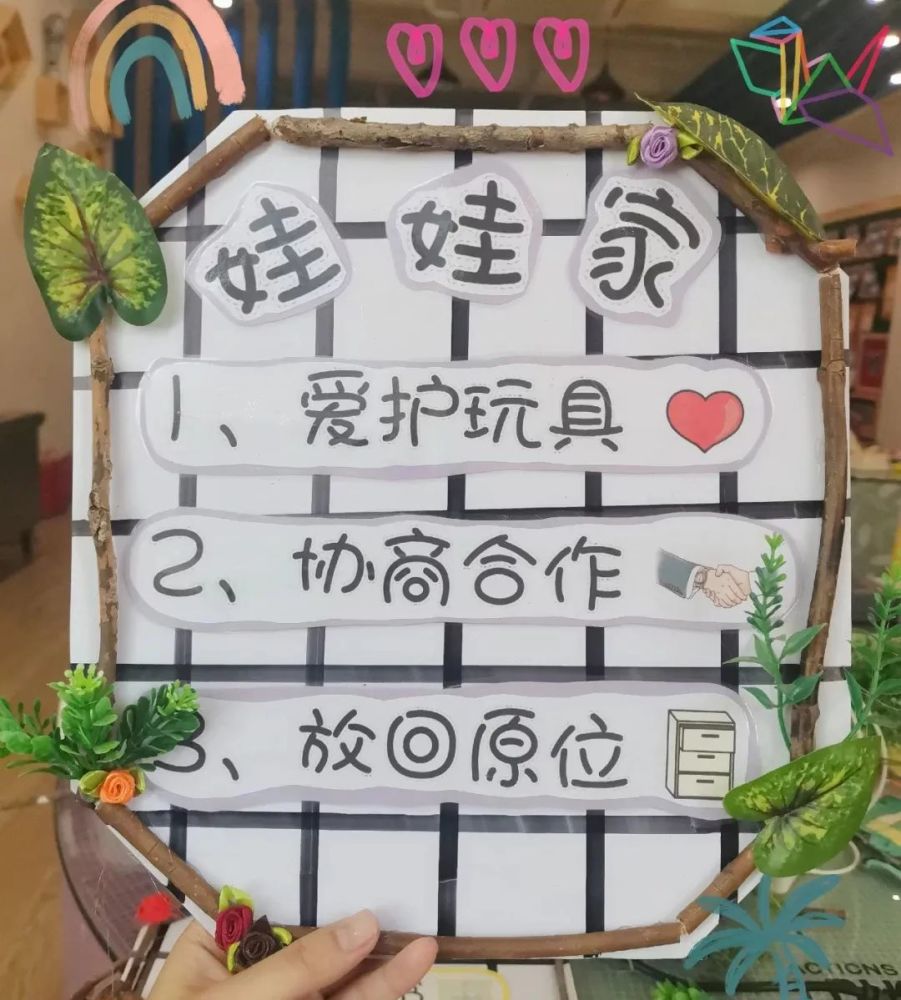 娃娃家
1、爱护玩具
2、协商合作
3、放回原位
CTIONS